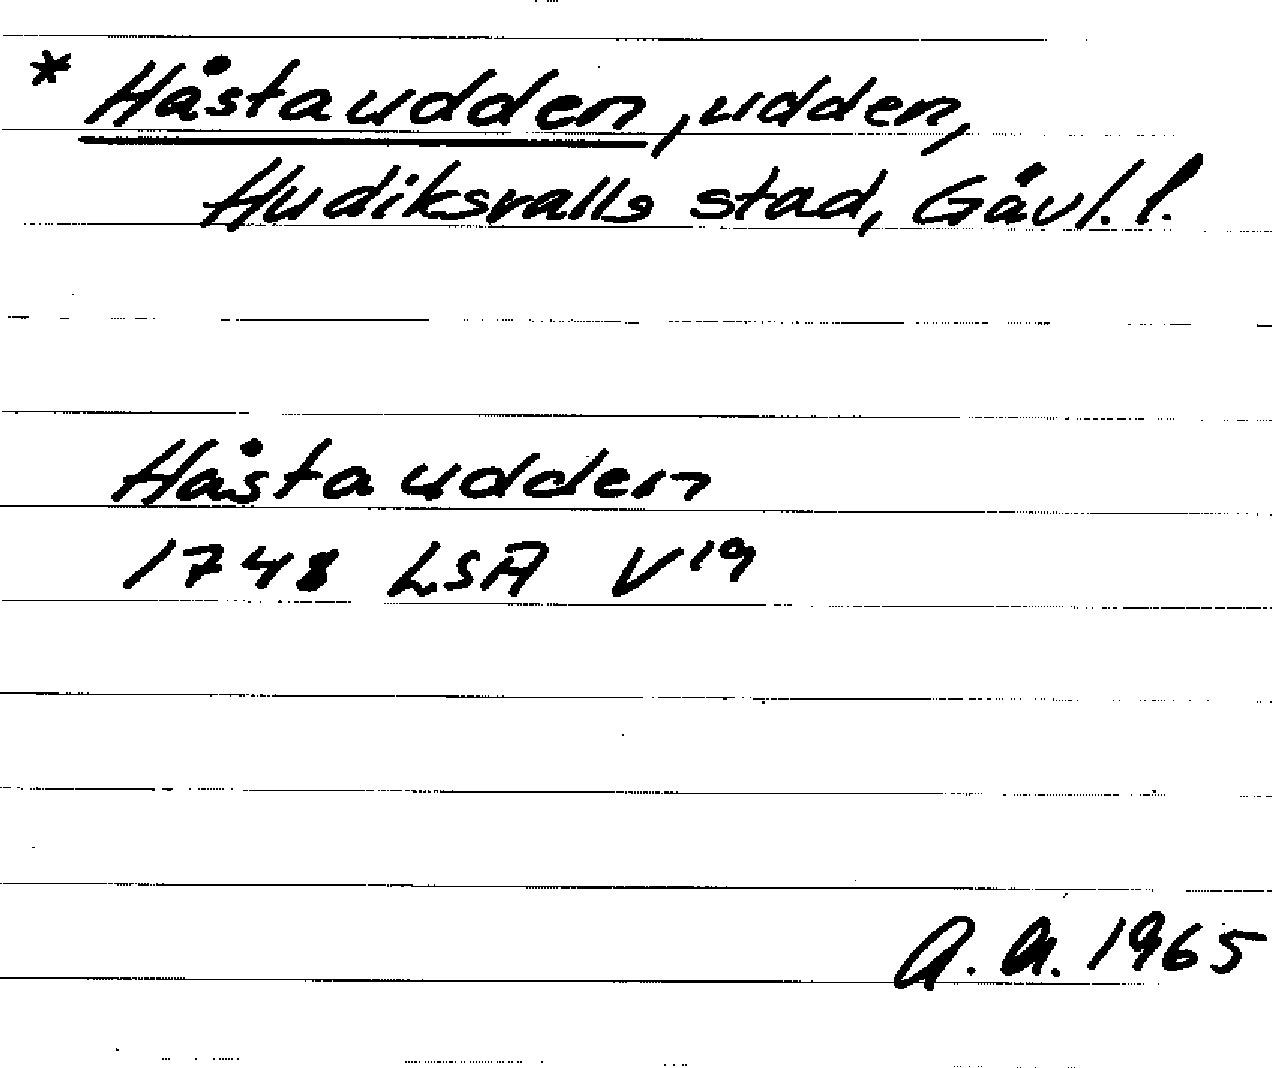 * Håstaudden, udden,
Hudiksvalls stad, Gävl. l.
Håstaudden
1748 LSA V19
A. A. 1965